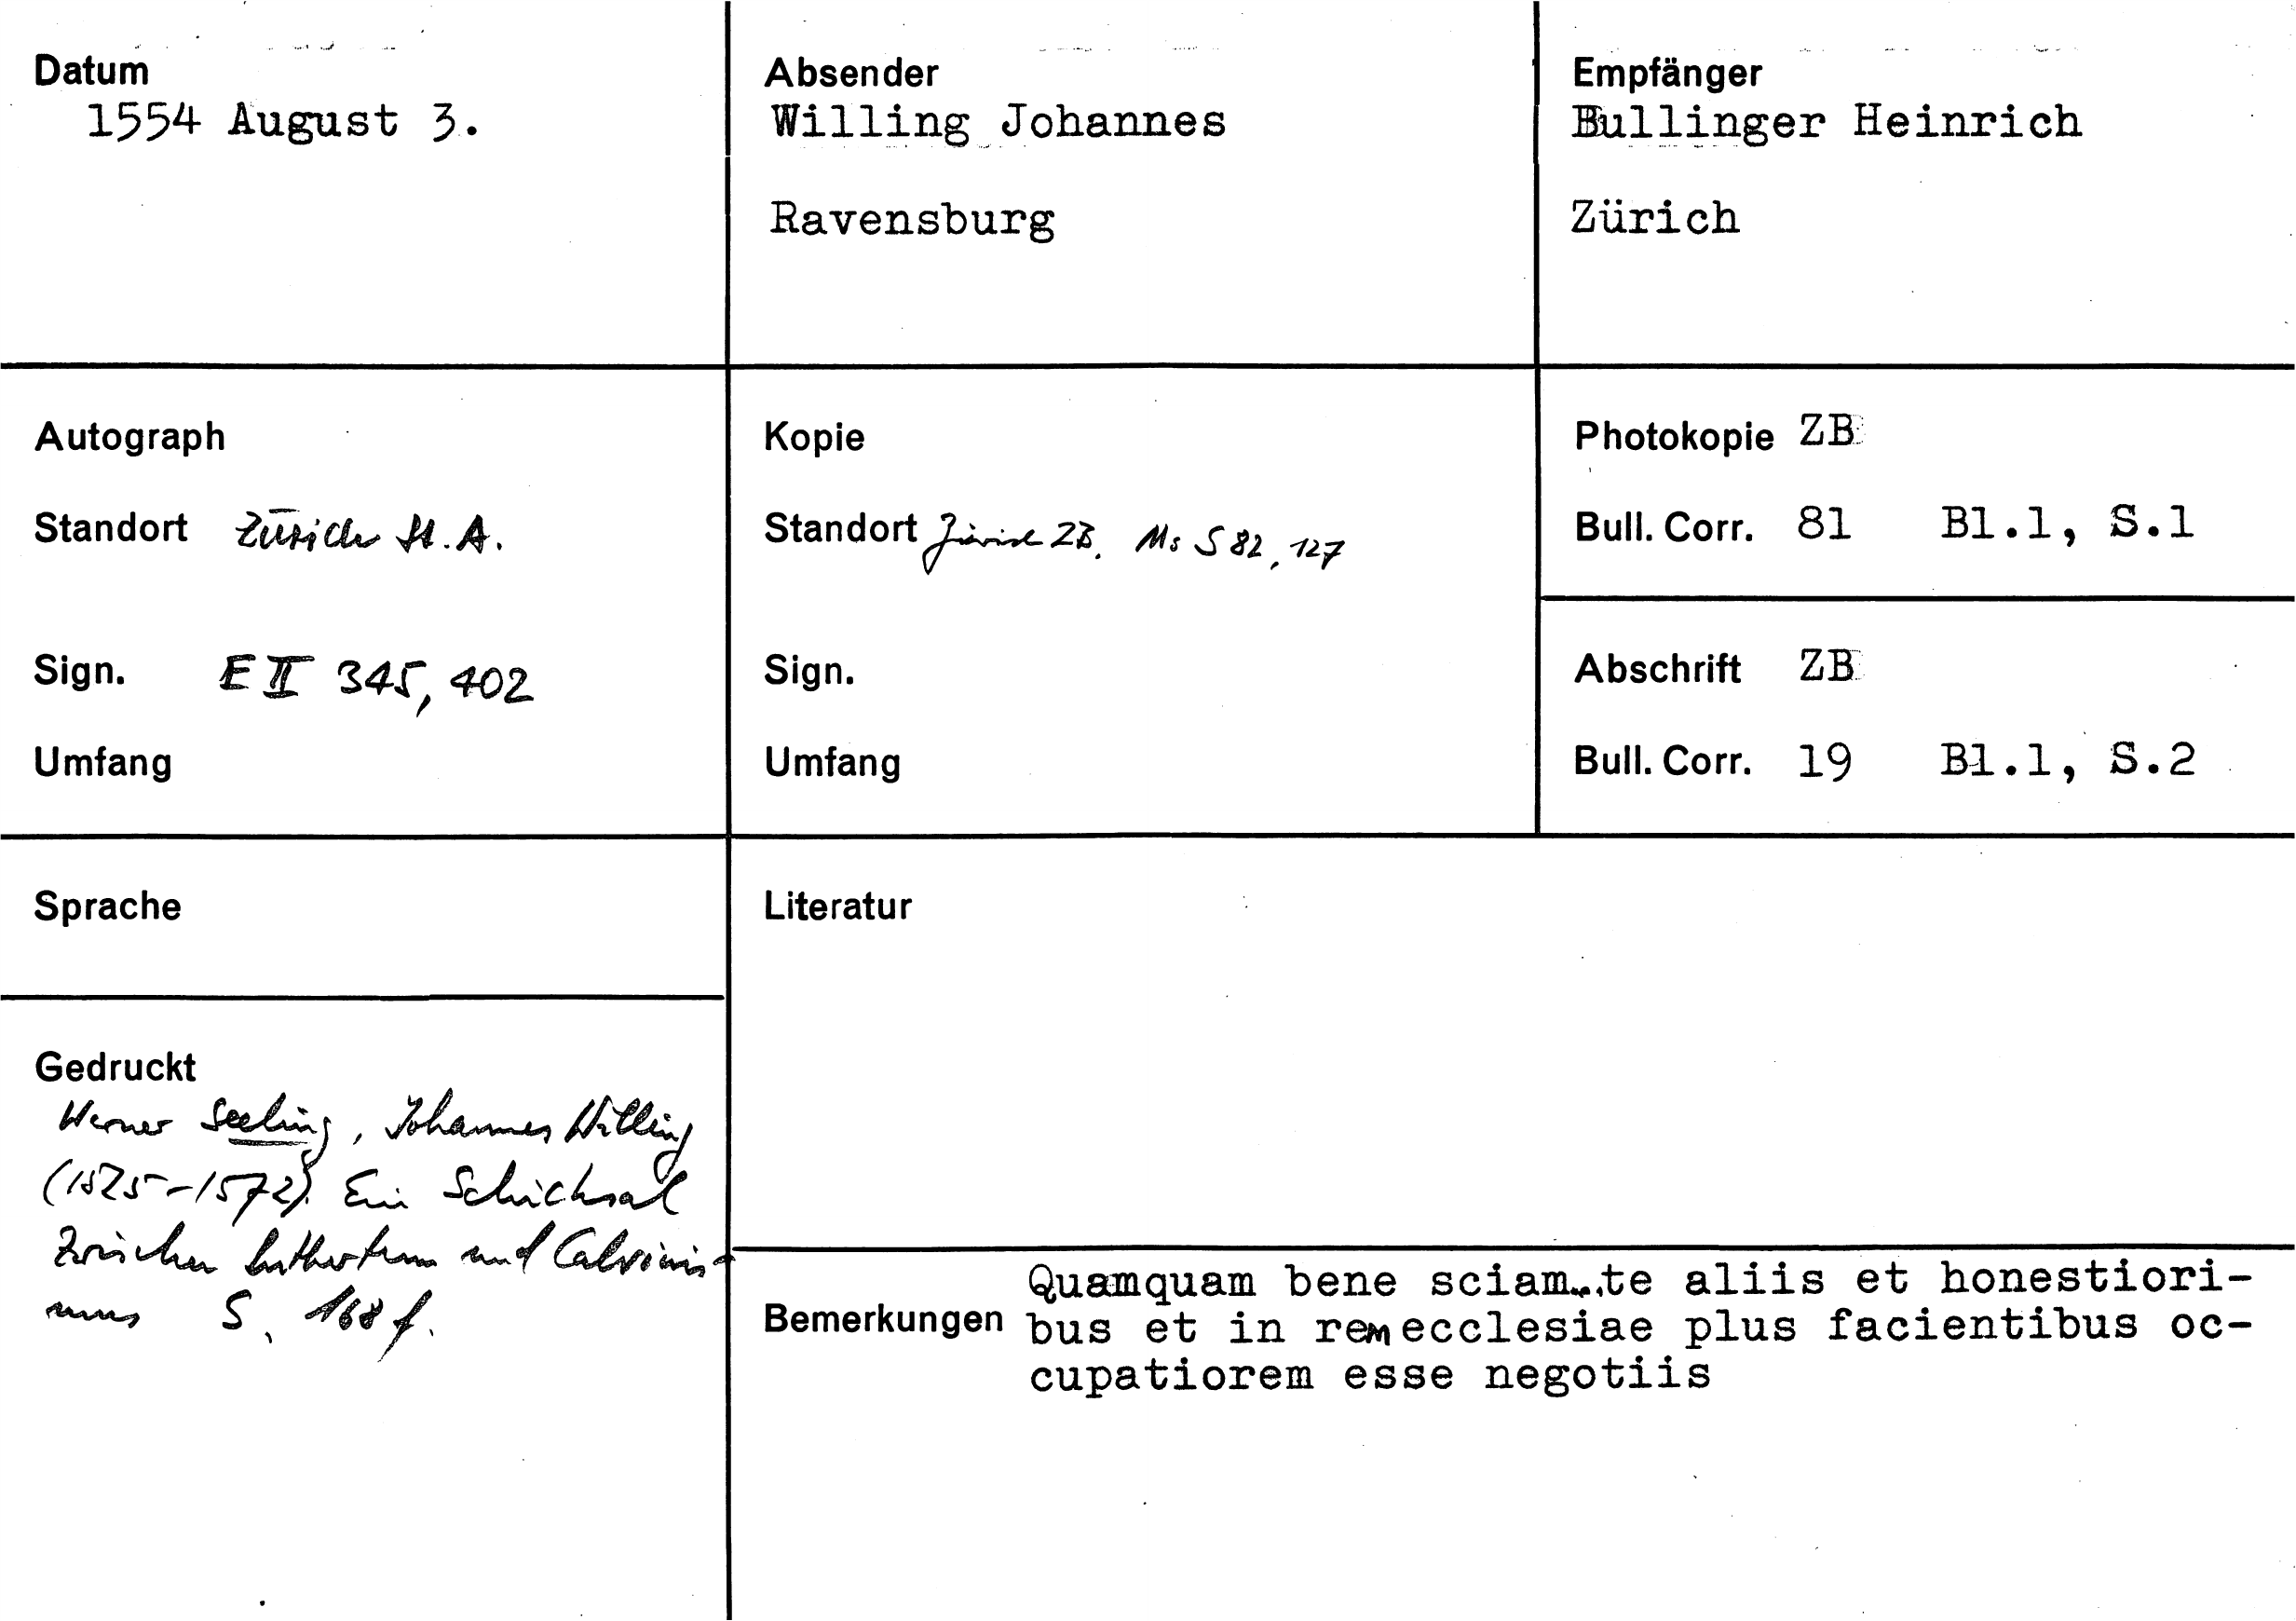 Datum
1554 August 3.
Absender
Willing Johannes
Ravensburg
Empfänger
Bullinger Heinrich
Zürich
Autograph
Standort Zürich St. A.
Sign. E II 345, 402
Umfang
Kopie
Standort Zürich ZB. Ms S 82, 127
Sign.
Umfang
Photokopie ZB
Bull. Corr. 81 Bl.1, S.1
Abschrift ZB
Bull. Corr. 19 Bl.1, S.2
Sprache
Gedruckt
Werner Seeling, Johannes Willing
(1525-1572). Ein Schicksal
zwischen Luthertum und Calvinis-
mus S. 168 f.
Literatur
Bemerkungen
Quamquam bene sciam...te aliis et honestiori-
bus et in rem ecclesiae plus facientibus oc-
cupatiorem esse negotiis